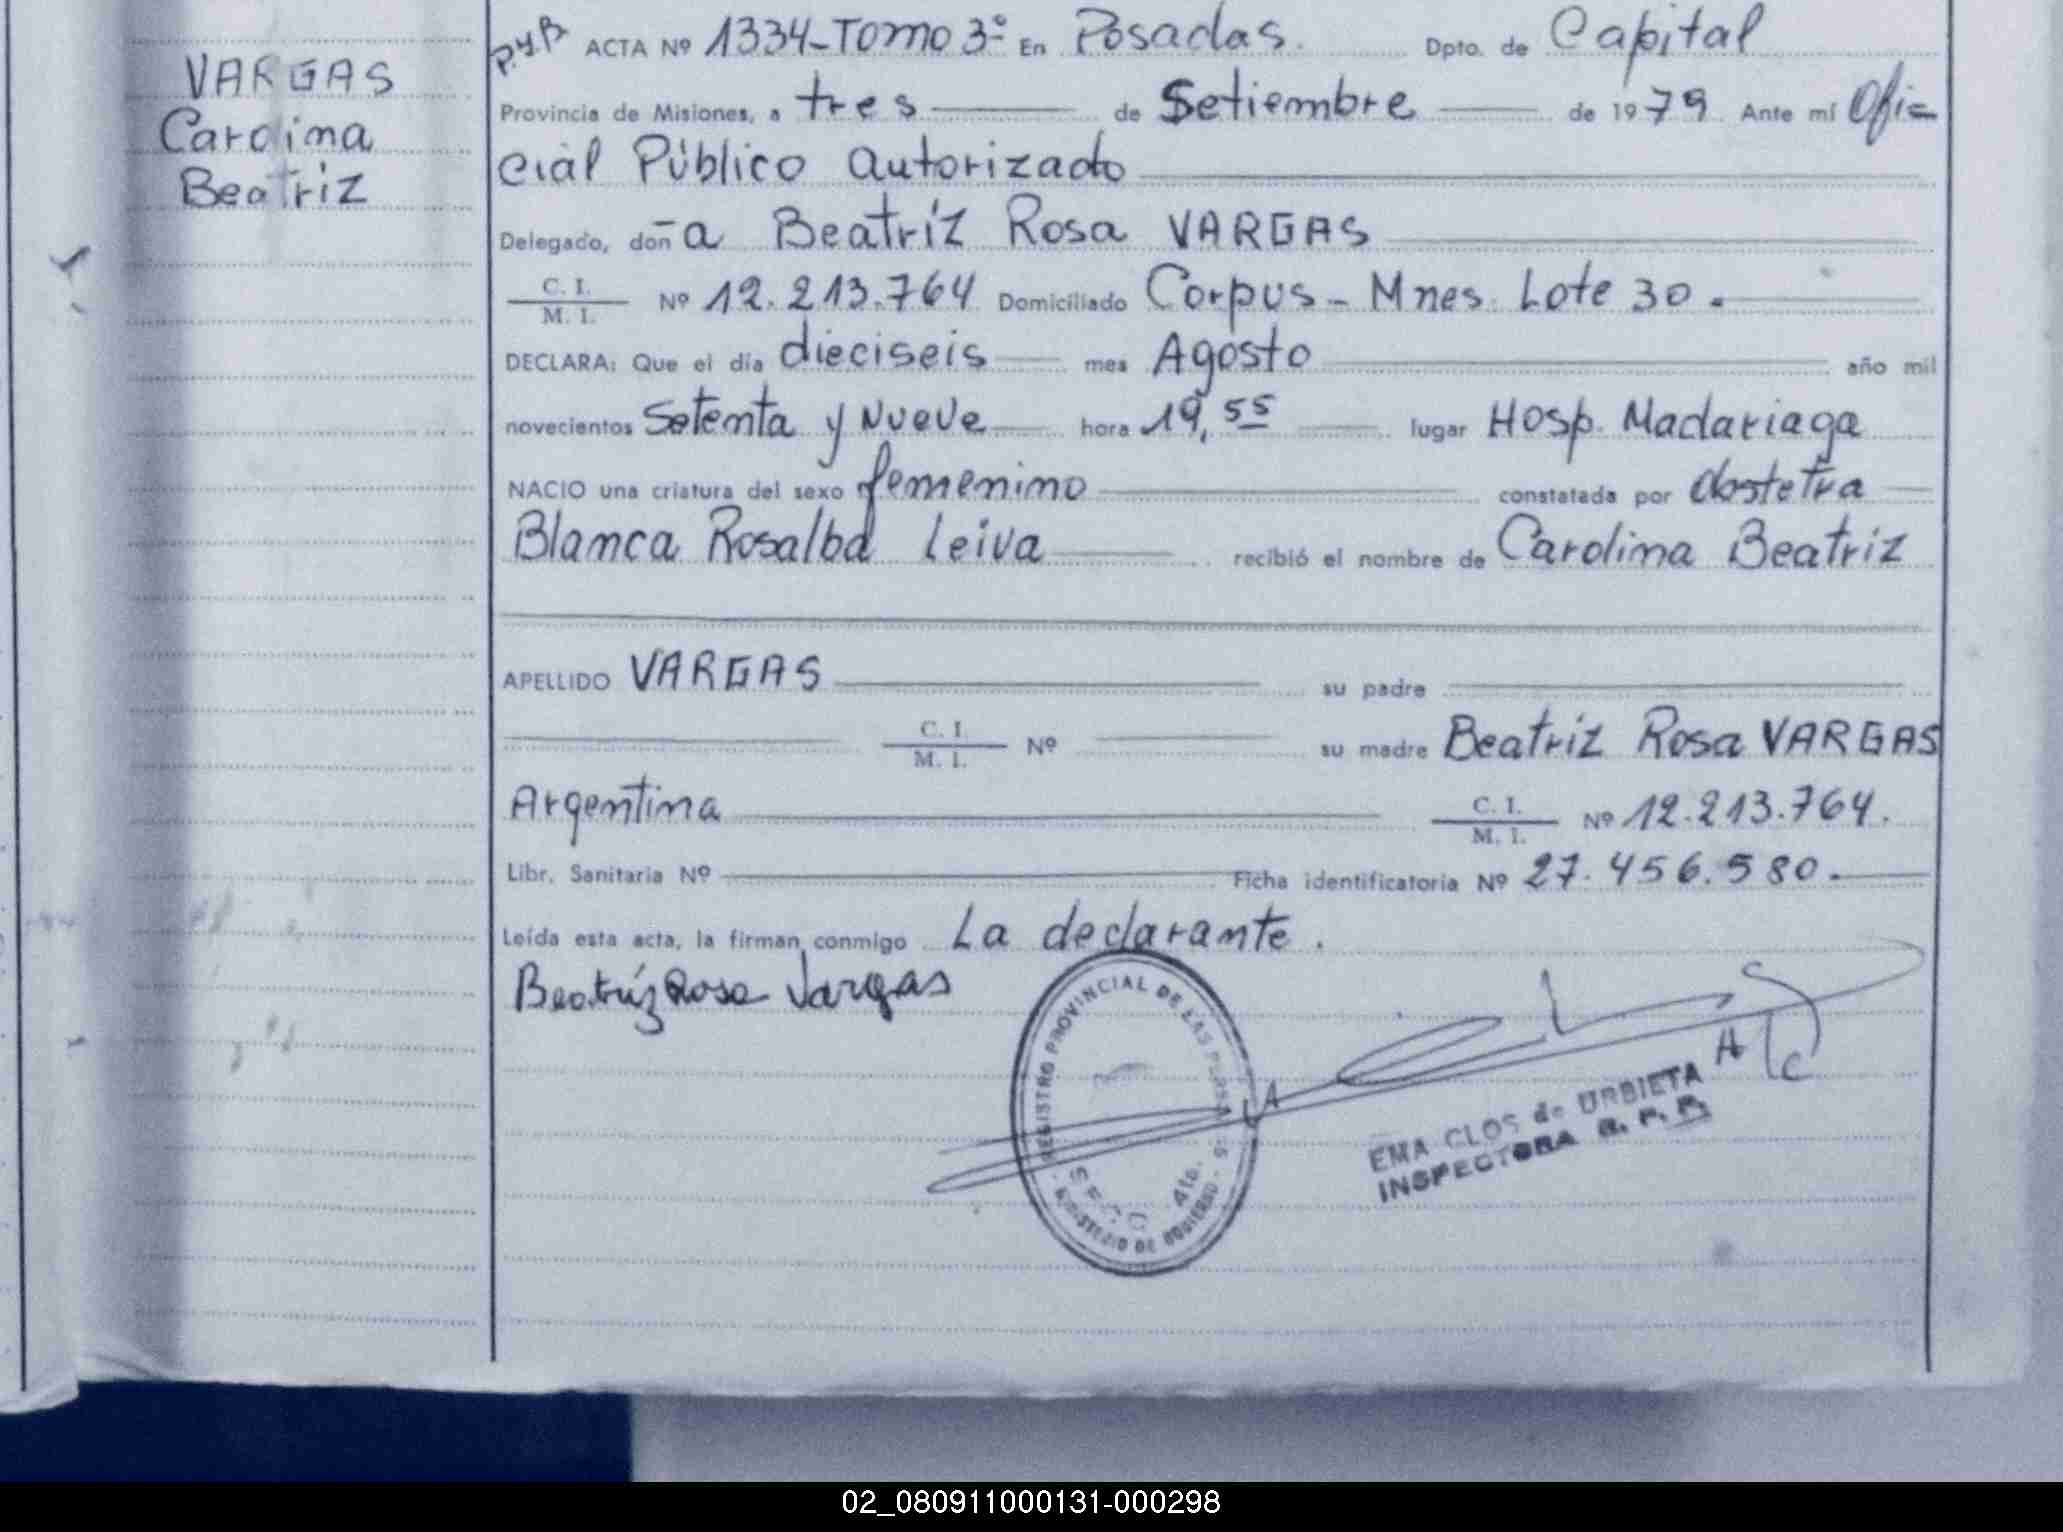 VARGAS
Carolina
Beatriz
P.y.B ACTA Nº 1334-Tomo 3º En Posadas. Dpto. de Capital
Provincia de Misiones, a tres de Setiembre de 1979. Ante mí Ofi=
cial Público autorizado
Delegado, don-a Beatríz Rosa VARGAS
C. I.
M. I. Nº 12.213.764 Domiciliado Corpus - Mnes. Lote 30.
DECLARA: Que el día dieciseis mes Agosto año mil
novecientos Setenta y Nueve hora 19,55 lugar Hosp. Madariaga
NACIO una criatura del sexo femenino constatada por obstetra
Blanca Rosalba Leiva recibió el nombre de Carolina Beatriz
APELLIDO VARGAS su padre
C. I.
M. I. Nº su madre Beatríz Rosa VARGAS
Argentina C. I.
M. I. Nº 12.213.764.
Libr. Sanitaria Nº Ficha identificatoria Nº 27.456.580.
Leída esta acta, la firman conmigo La declarante.
Beatríz Rosa Vargas
REGISTRO PROVINCIAL DE LAS PERSONAS
MINISTERIO DE GOBIERNO
EMA CLOS de URBIETA
INSPECTORA R. P. P.
02_080911000131-000298